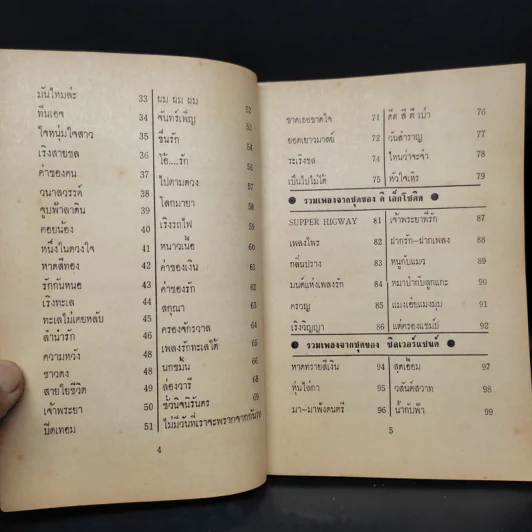 มันไหมล่ะ 33
ทีนเอจ 34
ใจหนุ่มใจสาว 35
เริงสายชล 36
ค่าของคน 37
วนาสวรรค์ 38
จูบฟ้าลาดิน 39
คอยน้อง 40
หนึ่งในดวงใจ 41
หาดสีทอง 42
รักกันหนอ 43
เริงทะเล 44
ทะเลไม่เคยหลับ 45
ลำนำรัก 46
ความหวัง 47
ชาวดง 48
สายใยชีวิต 49
เจ้าพระยา 50
ปิดเทอม 51
ผม ผม ผม 52
จันทร์เพ็ญ 53
ชื่นรัก 54
โอ้....รัก 56
ไปตามดวง 57
โลกมายา 58
เริงรถไฟ 59
หนาวเนื้อ 60
ค่าของเงิน 61
ค่าของรัก 62
สกุณา 63
ครองจักรวาล 64
เพลงรักทะเลใต้ 65
นกขมิ้น 66
ล่องวารี 68
ชั่วนิจนิรันดร 69
ไม่มีวันที่เราจะพรากจากกัน
4
ขาดเธอขาดใจ 71
ยอดเยาวมาลย์ 72
ระเริงชล 74
เป็นไปไม่ได้ 75
ดีด สี ตี เป่า 76
วันสำราญ 77
ไหนว่าจะจำ 78
หัวใจเหิร 79
รวมเพลงจากชุดของ ดิ เอ็กโซติด
SUPPER HIGWAY 81
เพลงไพร 82
กลิ่นปราง 83
มนต์แห่งเพลงรัก 84
ครวญ 85
เริงวิญญา 86
เจ้าพระยาที่รัก 87
ฝากรัก-ฝากเพลง 88
หนูกับแมว 89
หมาป่ากับลูกแกะ 90
แมงเฮ้ยแมงมุม 91
แด่ครองแชมป์ 92
รวมเพลงจากชุดของ ซิลเวอร์แซนด์
หาดทรายสีเงิน 94
หุ่นไล่กา 95
มา-มาฟังดนตรี 96
สุดเอื้อม 97
วสันต์สวาท 98
น้ำกับฟ้า 99
5